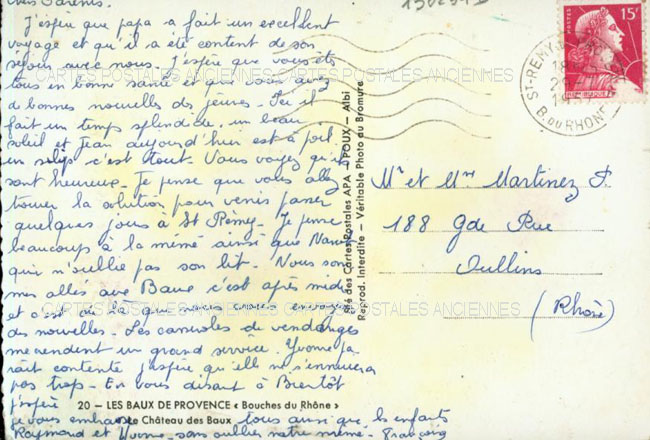 chers Parents.
J'espère que papa a fait un excellent
voyage et qu'il a été content de son
séjour avec nous. J'espère que vous êtes
tous en bonne santé et que vous avez
de bonnes nouvelles des jeunes. Ici il
fait un temps splendide, un beau
soleil et Jean aujourd'hui est à poil
en slip c'est tout. Vous voyez qu'ils
sont heureux. Je pense que vous allez
trouver la solution pour venir passer
quelques jours à St Rémy. Je pense
beaucoup à la mémé ainsi que
qui n'oublie pas son lit. Nous som
mes allés aux Baux c'est après midi
et c'est de là que nous vous envoy
des nouvelles. Les casseroles de vendanges
me rendent un grand service. Yvonne pa
raît contente j'espère qu'elle ne s'ennuiera
pas trop. En vous disant à Bientôt
j'espère
je vous embrasse tous ainsi que les enfants
Raymond et Yvonne sans oublier notre mémé. Francine
20 — LES BAUX DE PROVENCE « Bouches du Rhône »
Le Château des Baux
Sté des Cartes Postales APA - POUX — Albi
Reprod. Interdite — Véritable Photo au Bromure
POSTES
15F
ST-REMY
B. DU RHONE
Mr et Mme Martinez P.
188 Gde Rue
Oullins
(Rhône)
CARTES POSTALES ANCIENNES
CARTES POSTALES ANCIENNES